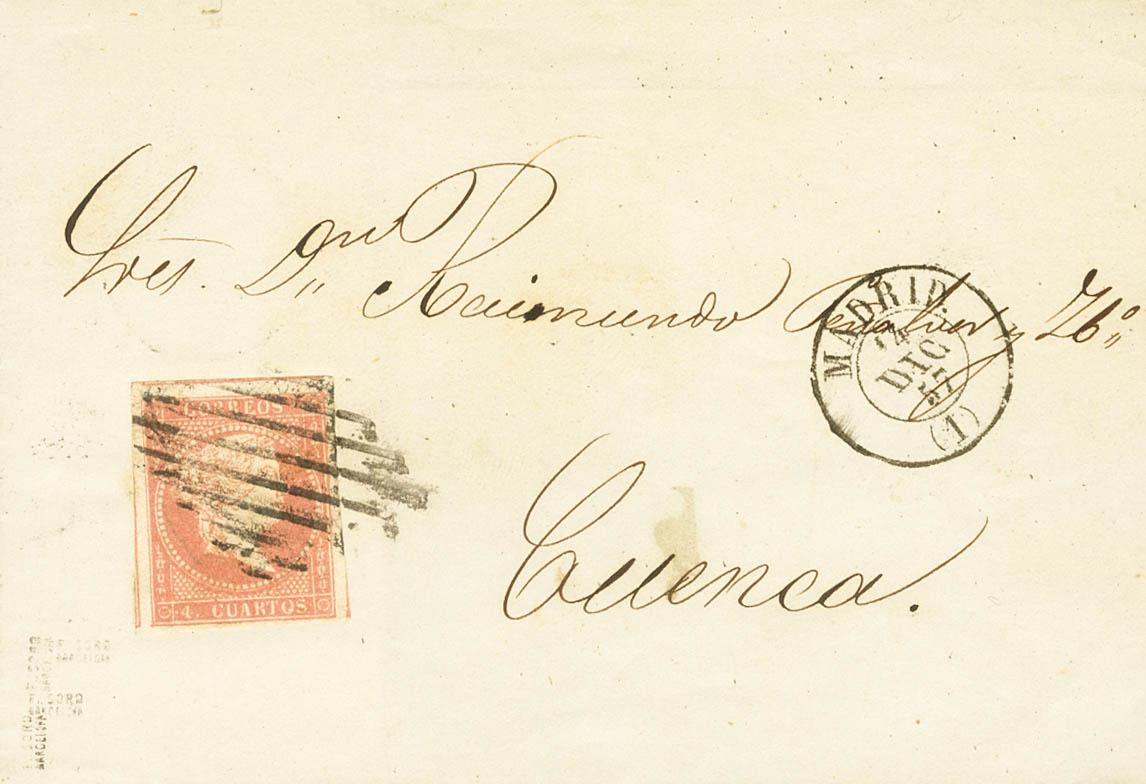 Sres. Dn. Raimundo Peñalver y Hº
MADRID.
24
DIC
57
(1)
CORREOS
4. CUARTOS
Cuenca.
BARCELONA